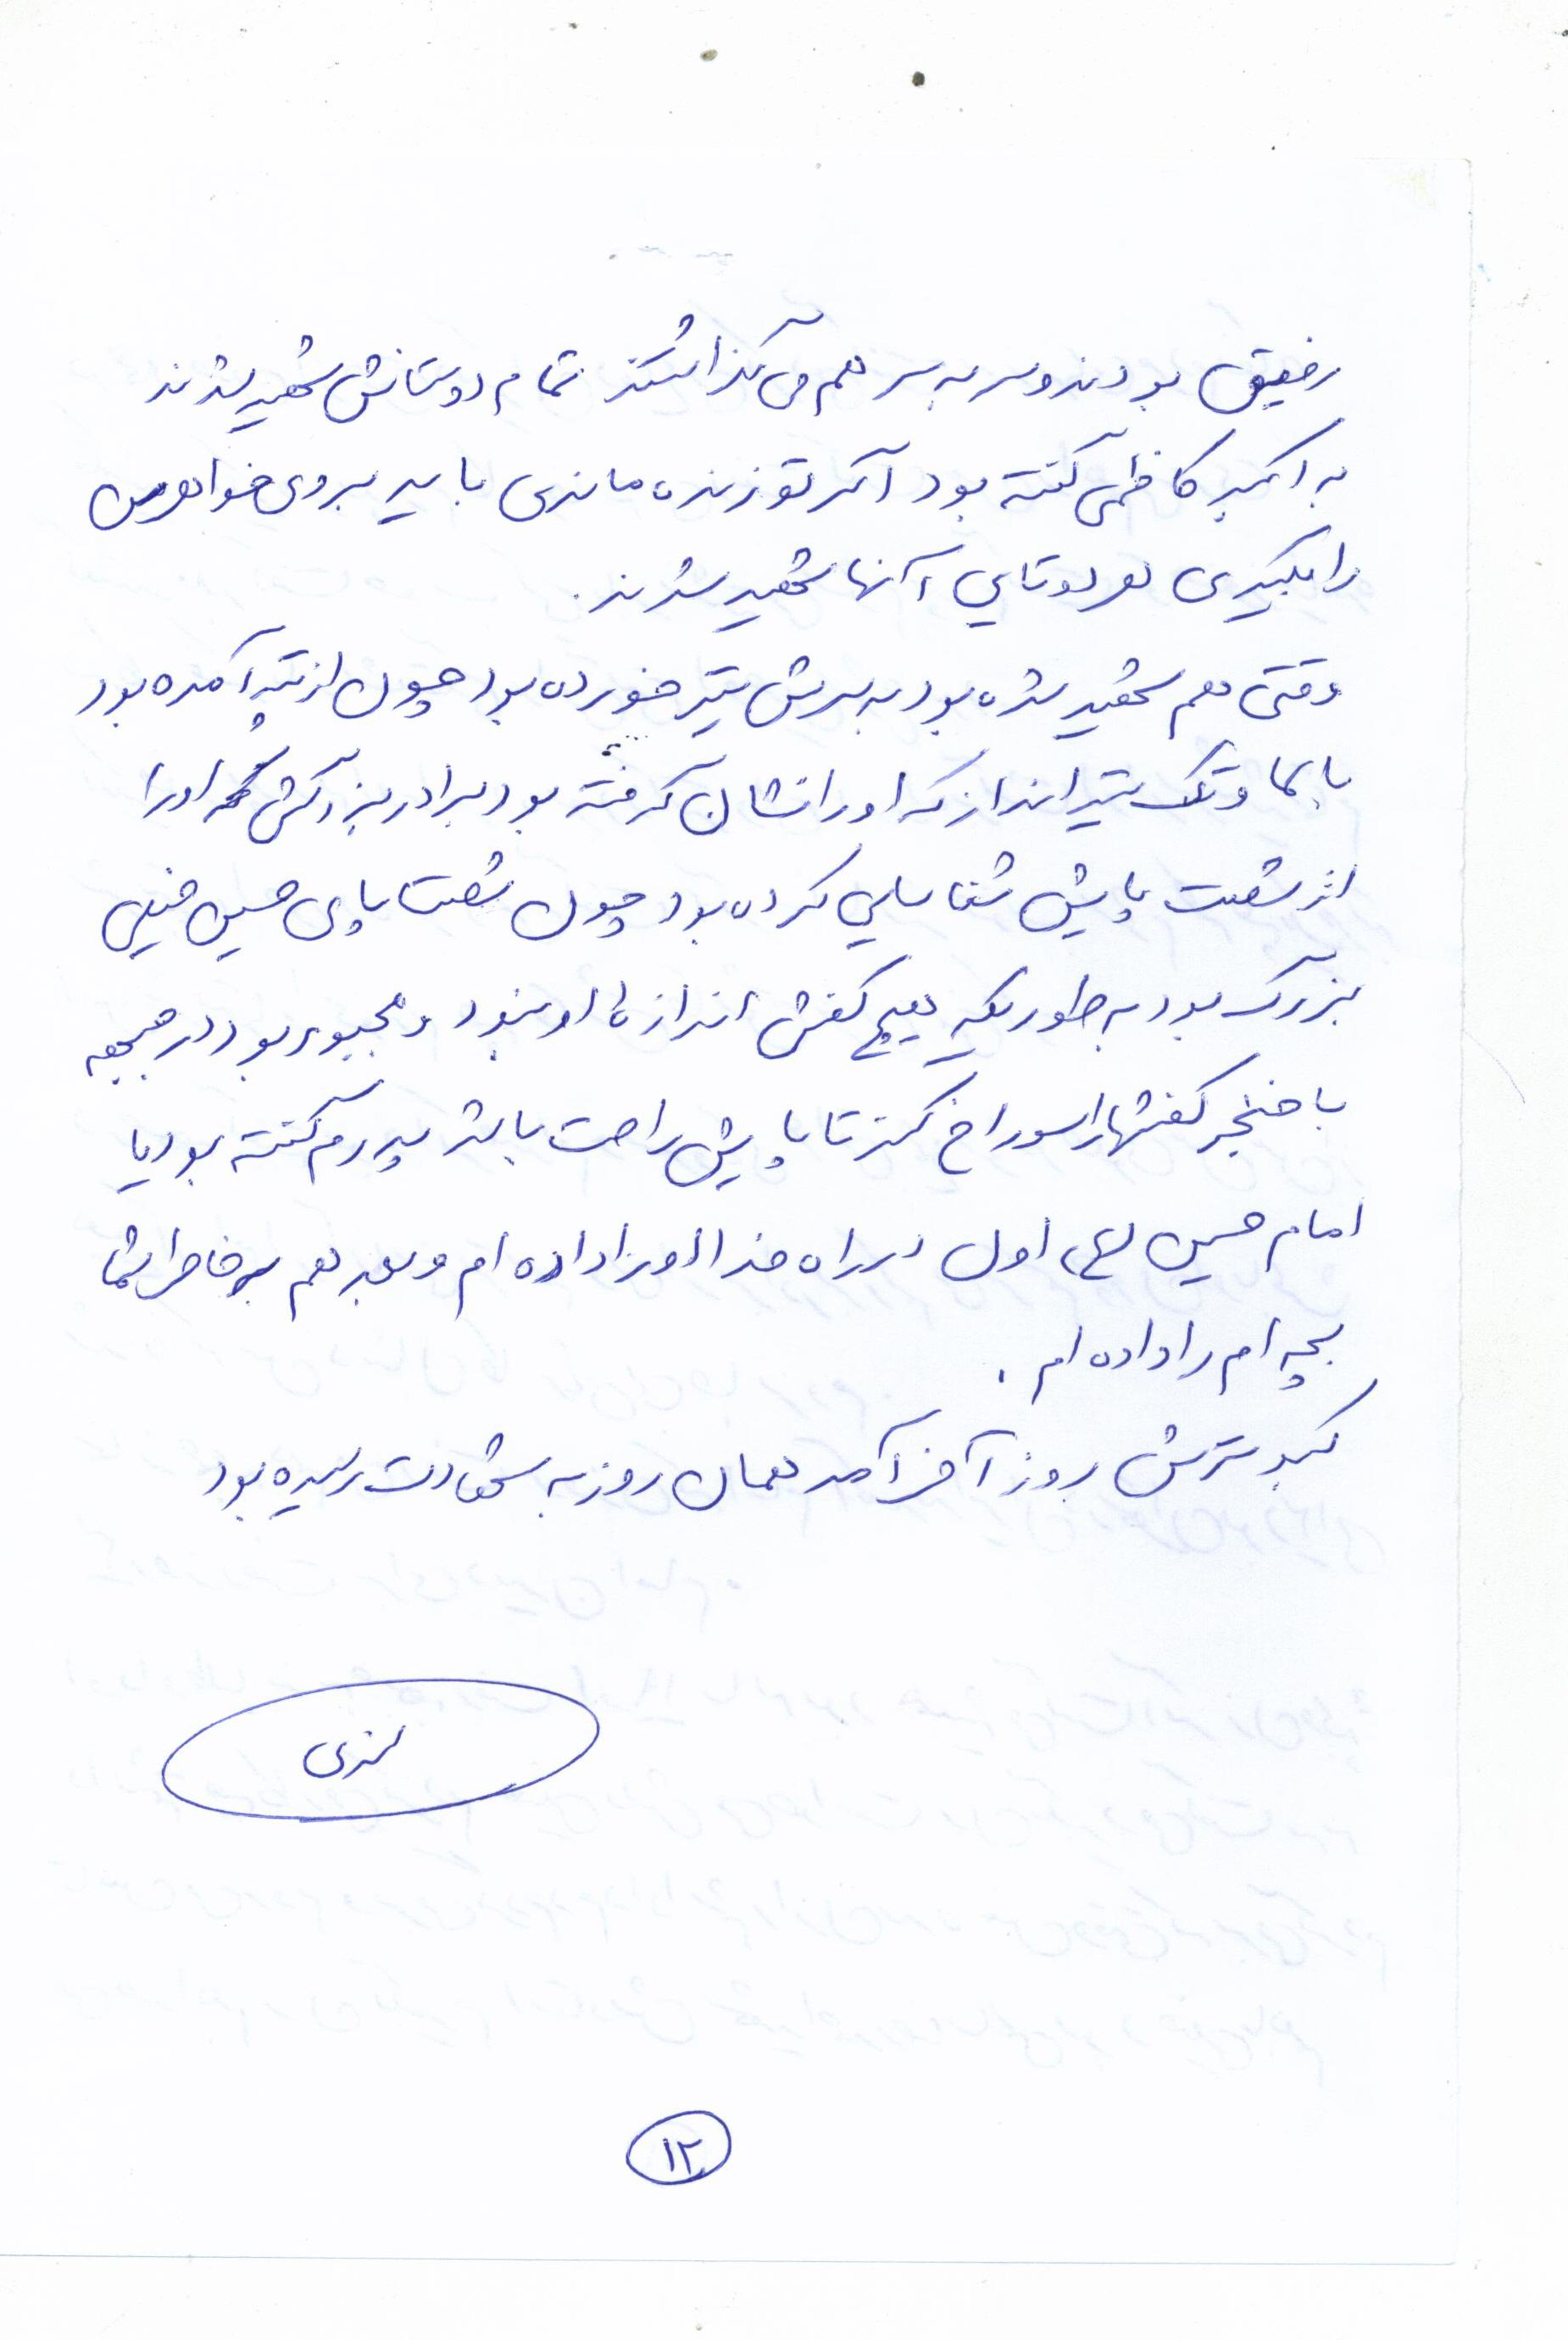 رفیق بودند و سر به سر هم می گذاشتند تمام دوستانش شهید شدند
به اکبر کاظمی گفته بود اگر تو زنده ماندی باید بروی خواهرمن
را بگیری هر دوتای آنها شهید شدند.
وقتی هم شهید شده بود به سرش تیر خورده بود چون از تپه آمده بود
با تک تیرانداز که او را نشان گرفته بود برادر بزرگش که او را
از شصت پایش شناسایی کرده بود چون شصت پای حسین خیلی
بزرگ بود به طوریکه هیچ کفش اندازۀ او نبود و مجبور بود در جبهه
با خنجر کفشها را سوراخ کند تا پایش راحت باشد پدرم گفته بود یا
امام حسین (ع) اول در راه خدا او را داده ام و بعد هم به خاطر شما
بچه ام را داده ام.
کبوترش روز آخر آمد همان روز به شهادت رسیده بود
۱۲